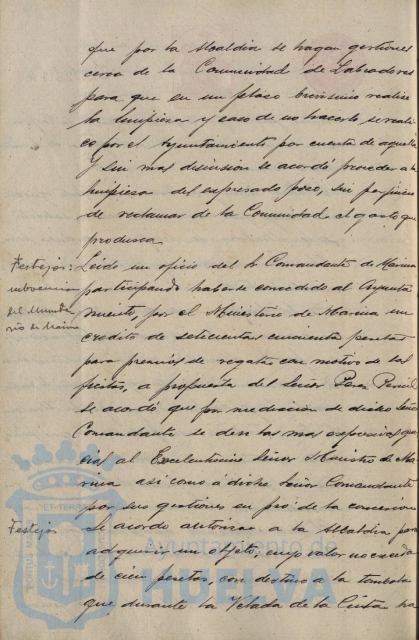 que por la Alcaldía se hagan gestiones
cerca de la Comunidad de Labradores
para que en un plazo brevísimo realice
la limpieza y caso de no hacerlo se reali-
ce por el Ayuntamiento por cuenta de aquella
Y sin mas discusion se acordó proceder a la
limpieza del expresado pozo, sin perjuicio
de reclamar de la Comunidad el gasto que
produzca.
Festejos: Leido un oficio del Sr Comandante de Marina
subvencion participando haberse concedido al Ayunta
del Ministe miento, por el Ministerio de Marina un
rio de Marina credito de setecientas cincuenta pesetas
para premios de regatas con motivo de las
fiestas, a propuesta del Señor Perez
se acordó que por mediacion de dicho Señor
Comandante se den las mas expresivas gra
cias al Excelentisimo Señor Ministro de Ma
rina asi como a dicho Señor Comandante
por sus gestiones en pró de la concesion
Festejos Se acordo autorizar a la Alcaldía para
adquirir un objeto, cuyo valor no exceda
de cien pesetas, con destino a la tombola
que durante la Velada de la Cinta ha
Ayuntamiento de
HUELVA